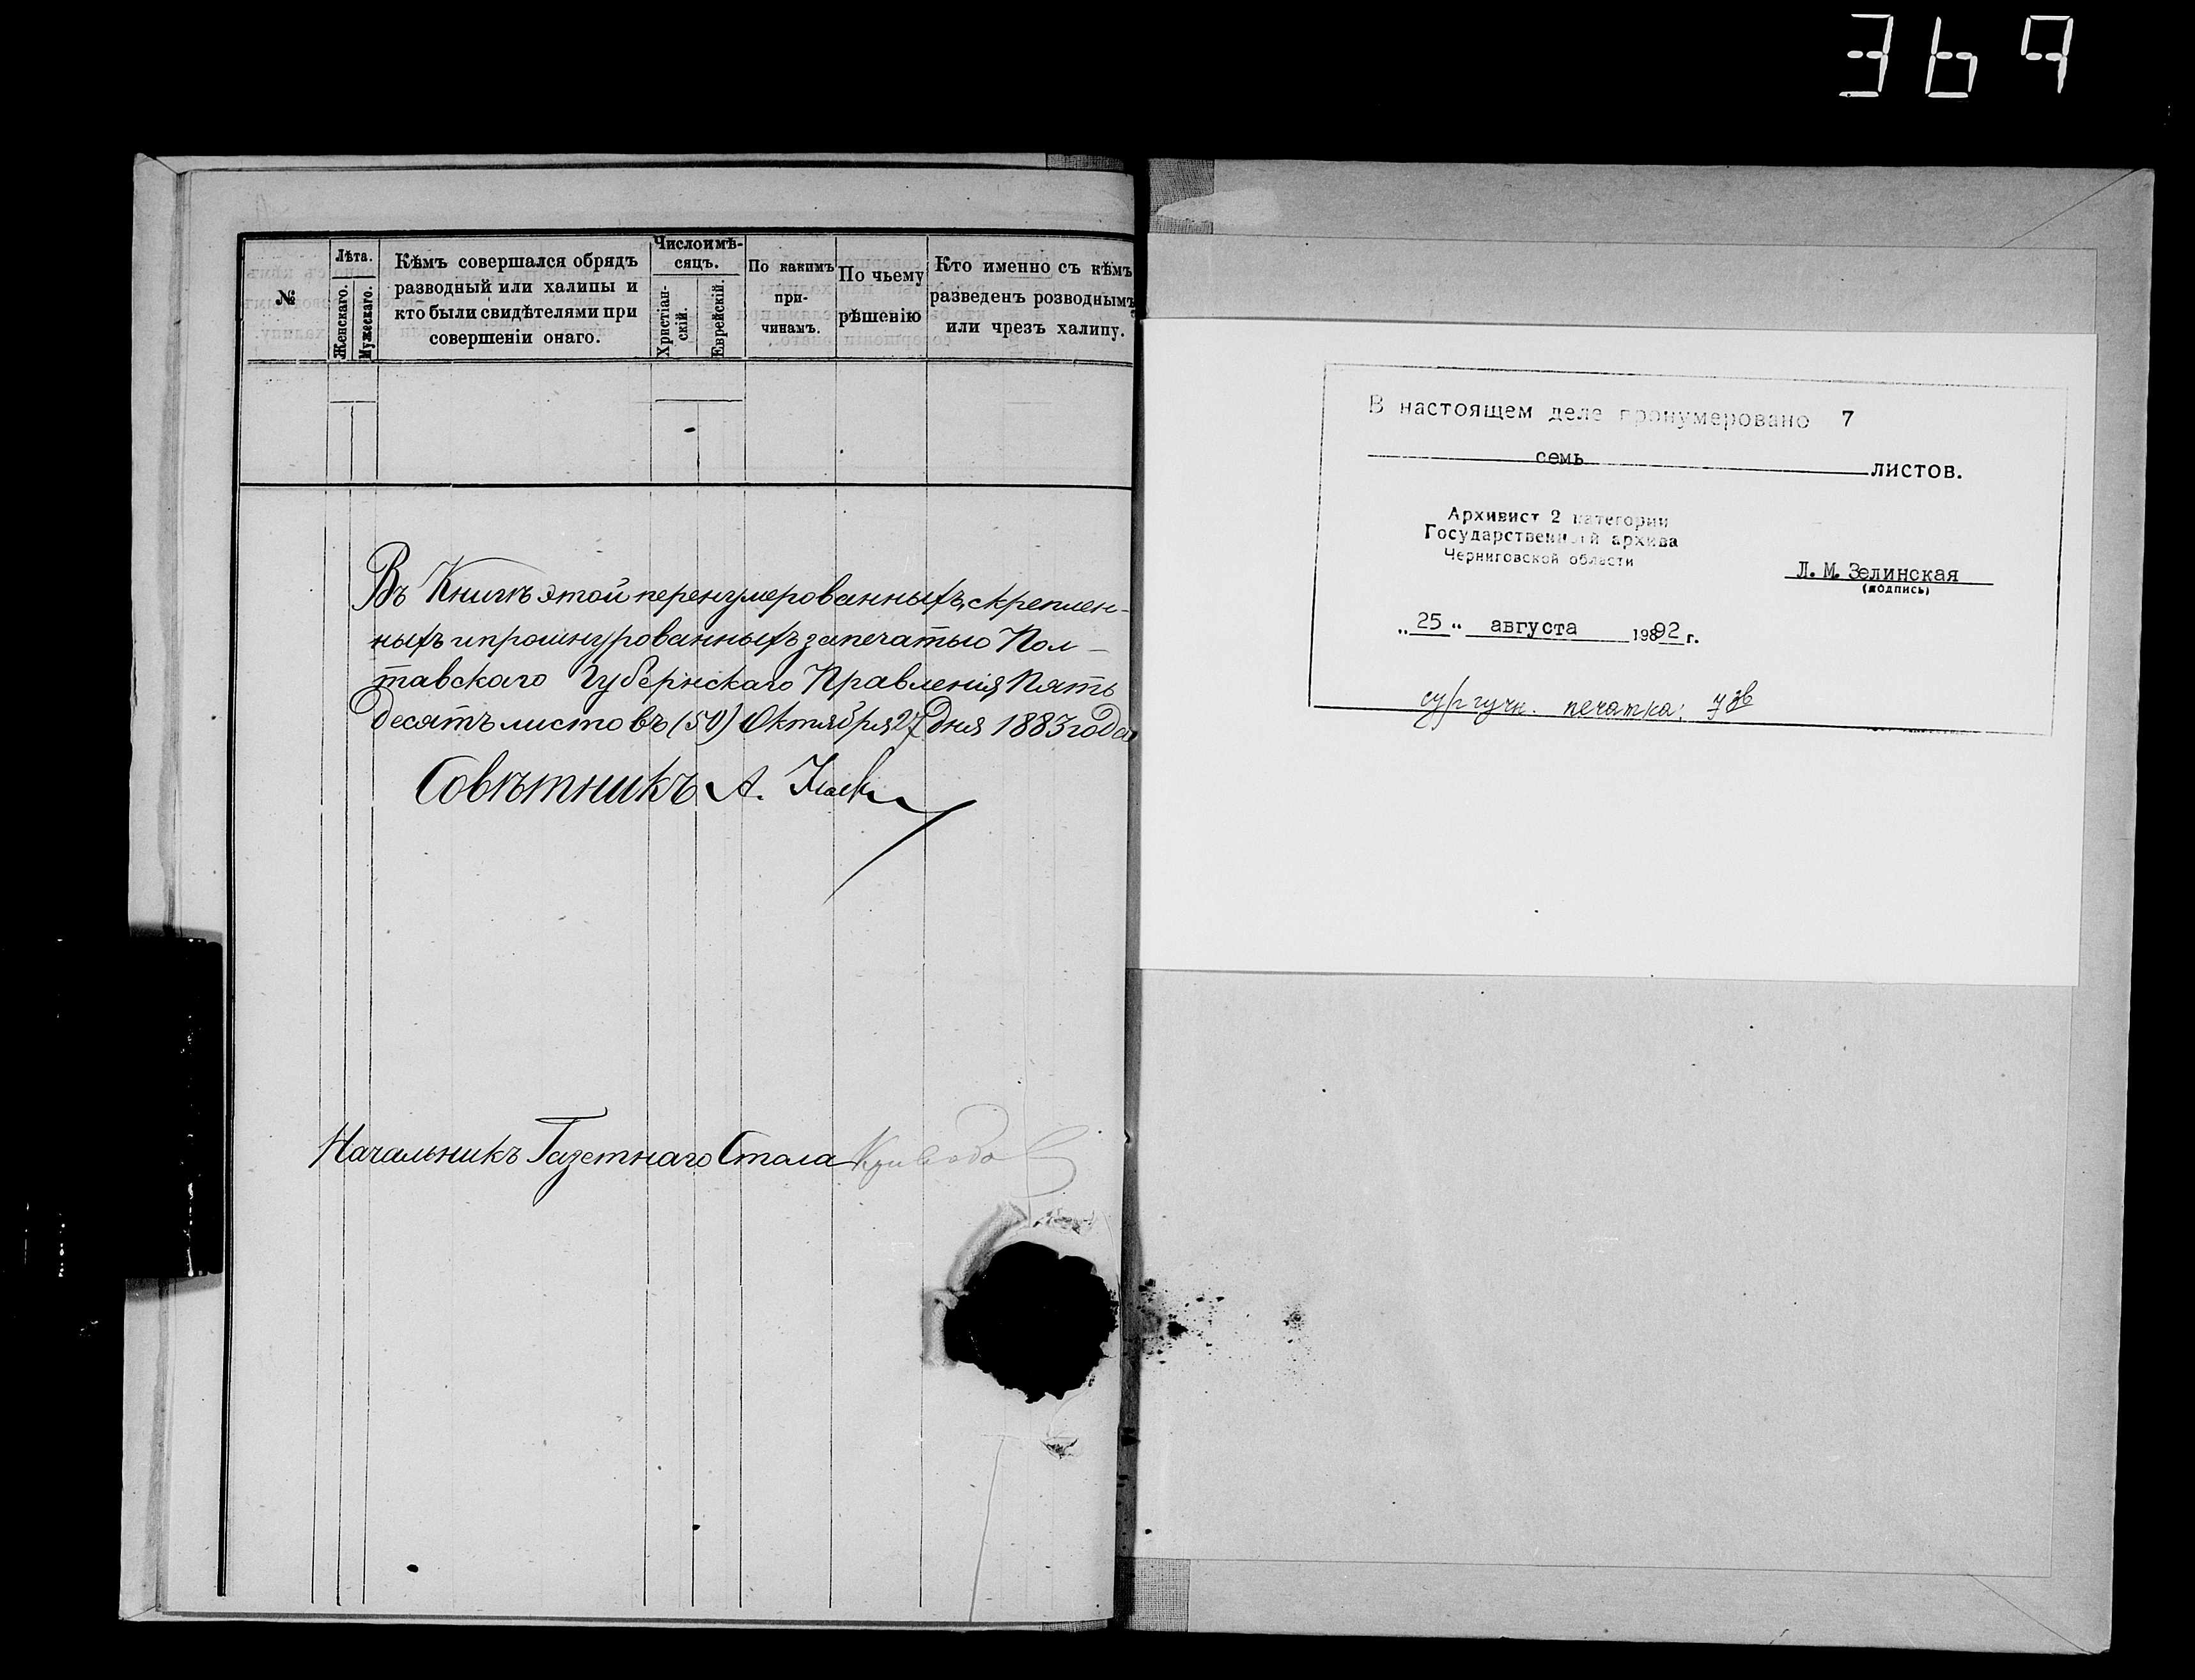 369
№
Лѣта.
Женскаго.
Мужескаго.
Кѣмъ совершался обрядъ
разводный или халицы и
кто были свидѣтелями при
совершеніи онаго.
Число и мѣ-
сяцъ.
Христіан-
скій.
Еврейскій.
По какимъ
при-
чинамъ.
По чьему
рѣшенію
Кто именно съ кѣмъ
разведенъ розводнымъ
или чрезъ халицу.
Въ Книгѣ этой перенумерованныхъ, скреплен-
ныхъ и прошнурованныхъ за печатью Пол-
тавскаго Губернскаго Правленія Пять
десятъ листовъ (50) Октября 27 дня 1883 года
Совѣтникъ А.
Начальникъ Газетнаго Стола
В настоящем деле пронумеровано 7
семь листов.
Архивист 2 категории
Государственный архива
Черниговской области
Л.М. Зелинская
(подпись)
„25“ августа 19892 г.
сургучн. печатка: